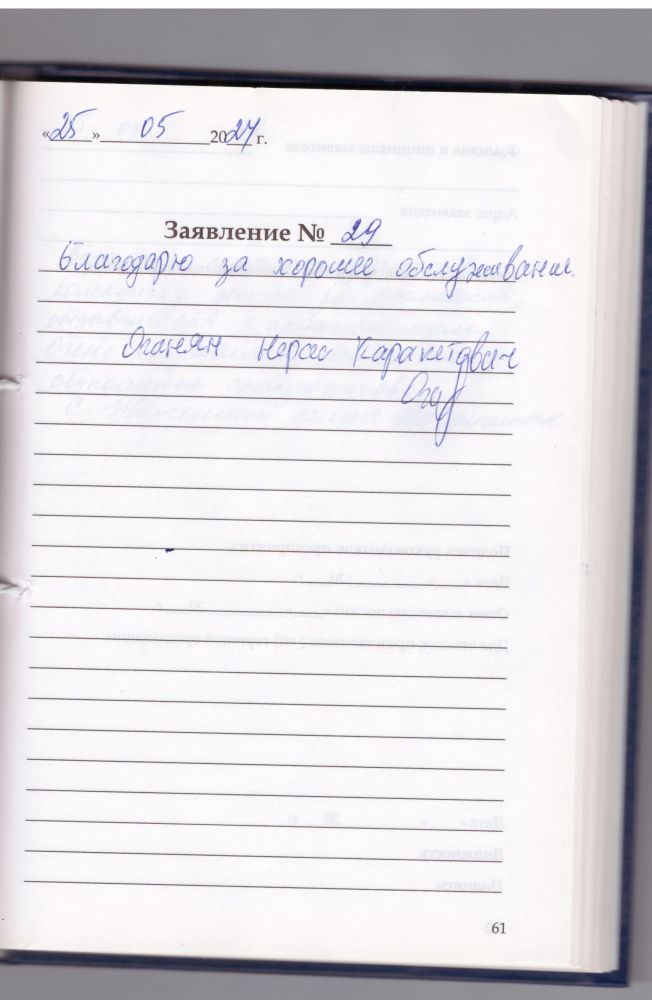 «25» 05 2024 г.
Заявление № 29
Благодарю за хорошее обслуживание.
Оганян Нерсес Карапетович
61